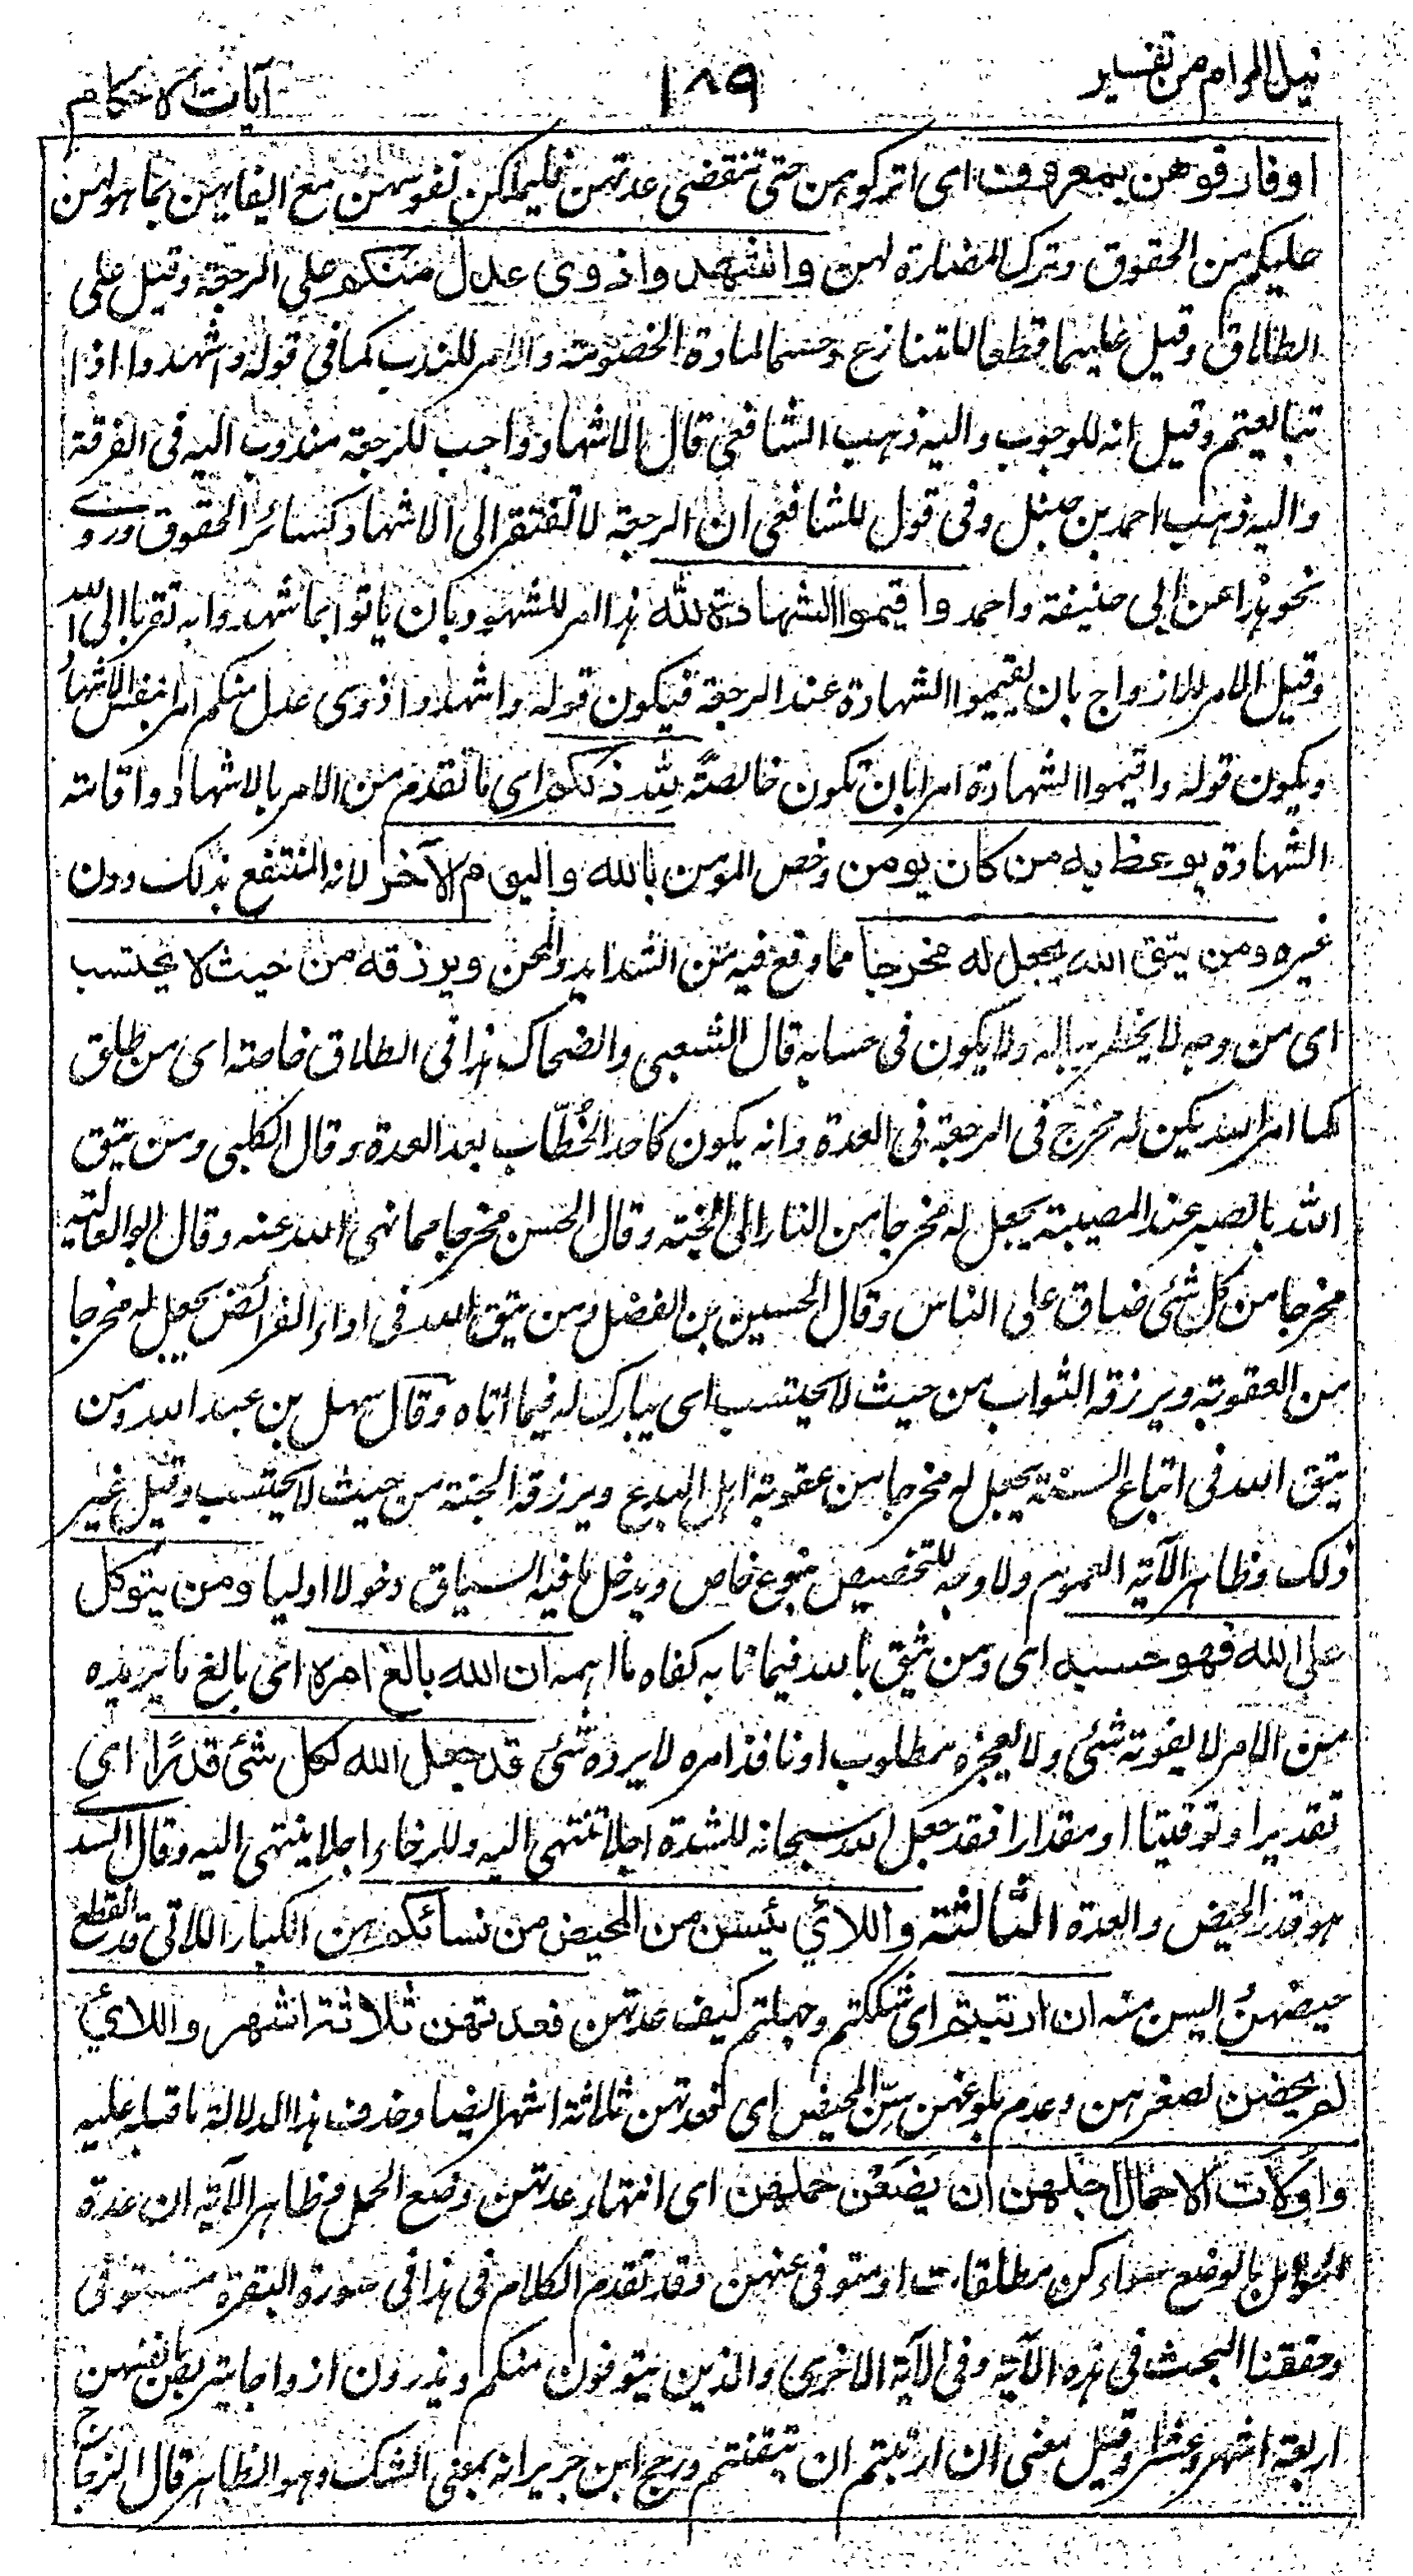 نيل المرام من تفسير ١٨٩ آيات الاحكام
او فارقوهن بمعروف اى اتركوهن حتى تنقضى عدتهن فليملكن نفوسهن مع ايفائهن بما هو لهن
عليكم من الحقوق وترك المضارة لهن واشهدوا ذوى عدل منكم على الرجعة وقيل على
الطلاق وقيل عليهما قطعا للتنازع وحسما لمادة الخصومة والامر للندب كما فى قوله واشهدوا اذا
تبايعتم وقيل انه للوجوب واليه ذهب الشافعى قال الاشهاد واجب للرجعة مندوب اليه فى الفرقة
واليه ذهب احمد بن حنبل وفى قول للشافعى ان الرجعة لا تفتقر الى الاشهاد كسائر الحقوق وروى
نحو هذا عن ابى حنيفة واحمد واقيموا الشهادة لله هذا امر للشهود بان ياتوا بما شهدوا به تقربا الى الله
وقيل الامر للازواج بان يقيموا الشهادة عند الرجعة فيكون قوله واشهدوا ذوى عدل منكم امرا بنفس الاشهاد
ويكون قوله واقيموا الشهادة امرا بان تكون خالصة لله ذلكم اى ما تقدم من الامر بالاشهاد واقامة
الشهادة يوعظ به من كان يومن وخص المومن بالله واليوم الآخر لانه المنتفع بذلك دون
غيره ومن يتق الله يجعل له مخرجا مما وقع فيه من الشدايد والمحن ويرزقه من حيث لا يحتسب
اى من وجه لا يخطر بباله ولا يكون فى حسابه قال الشعبى والضحاك هذا فى الطلاق خاصة اى من طلق
كما امر الله يكن له مخرج فى الرجعة فى العدة وانه يكون كاحد الخُطّاب بعد العدة وقال الكلبى ومن يتق
الله بالصبر عند المصيبة يجعل له مخرجا من النار الى الجنة وقال الحسن مخرجا مما نهى الله عنه وقال ابو العالية
مخرجا من كل شئ ضاق على الناس وقال الحسين بن الفضل ومن يتق الله فى اداء الفرائض يجعل له مخرجا
من العقوبة ويرزقه الثواب من حيث لا يحتسب اى يبارك له فيما اتاه وقال سهل بن عبد الله ومن
يتق الله فى اتباع السنة يجعل له مخرجا من عقوبة اهل البدع ويرزقه الجنة من حيث لا يحتسب وقيل غير
ذلك وظاهر الآية العموم ولا وجه للتخصيص بنوع خاص ويدخل ما فيه السياق دخولا اوليا ومن يتوكل
على الله فهو حسبه اى ومن يثق بالله فيما نابه كفاه ما اهمه ان الله بالغ امره اى بالغ ما يريده
من الامر لا يفوته شئ ولا يعجزه مطلوب او نافذ امره لا يرده شئ قد جعل الله لكل شئ قدرًا اى
تقديرا او توقيتا او مقدارا فقد جعل الله سبحانه للشدة اجلا تنتهى اليه وللرخاء اجلا ينتهى اليه وقال السدى
هو قدر الحيض والعدة الثالثة واللائي يئسن من المحيض من نسائكم هن الكبار اللاتى قد انقطع
حيضهن ايسن منه ان ارتبتم اى شككتم وجهلتم كيف عدتهن فعدتهن ثلاثة اشهر واللائي
لم يحضن لصغرهن وعدم بلوغهن سن المحيض اى فعدتهن ثلاثة اشهر ايضا وحذف هذا لدلالة ما قبله عليه
واولات الاحمال اجلهن ان يَضَعْن حملهن اى انتهاء عدتهن وضع الحمل وظاهر الآية ان عدة
الحوامل بالوضع سواء كن مطلقات او متوفى عنهن وقد تقدم الكلام فى هذا فى سورة البقرة مستوفى
وحققنا البحث فى هذه الآية وفى الآية الاخرى والذين يتوفون منكم ويذرون ازواجا يتربصن بانفسهن
اربعة اشهر وعشرا وقيل معنى ان ارتبتم ان تيقنتم ورجح ابن جرير انه بمعنى الشك وهو الظاهر قال الزجاج